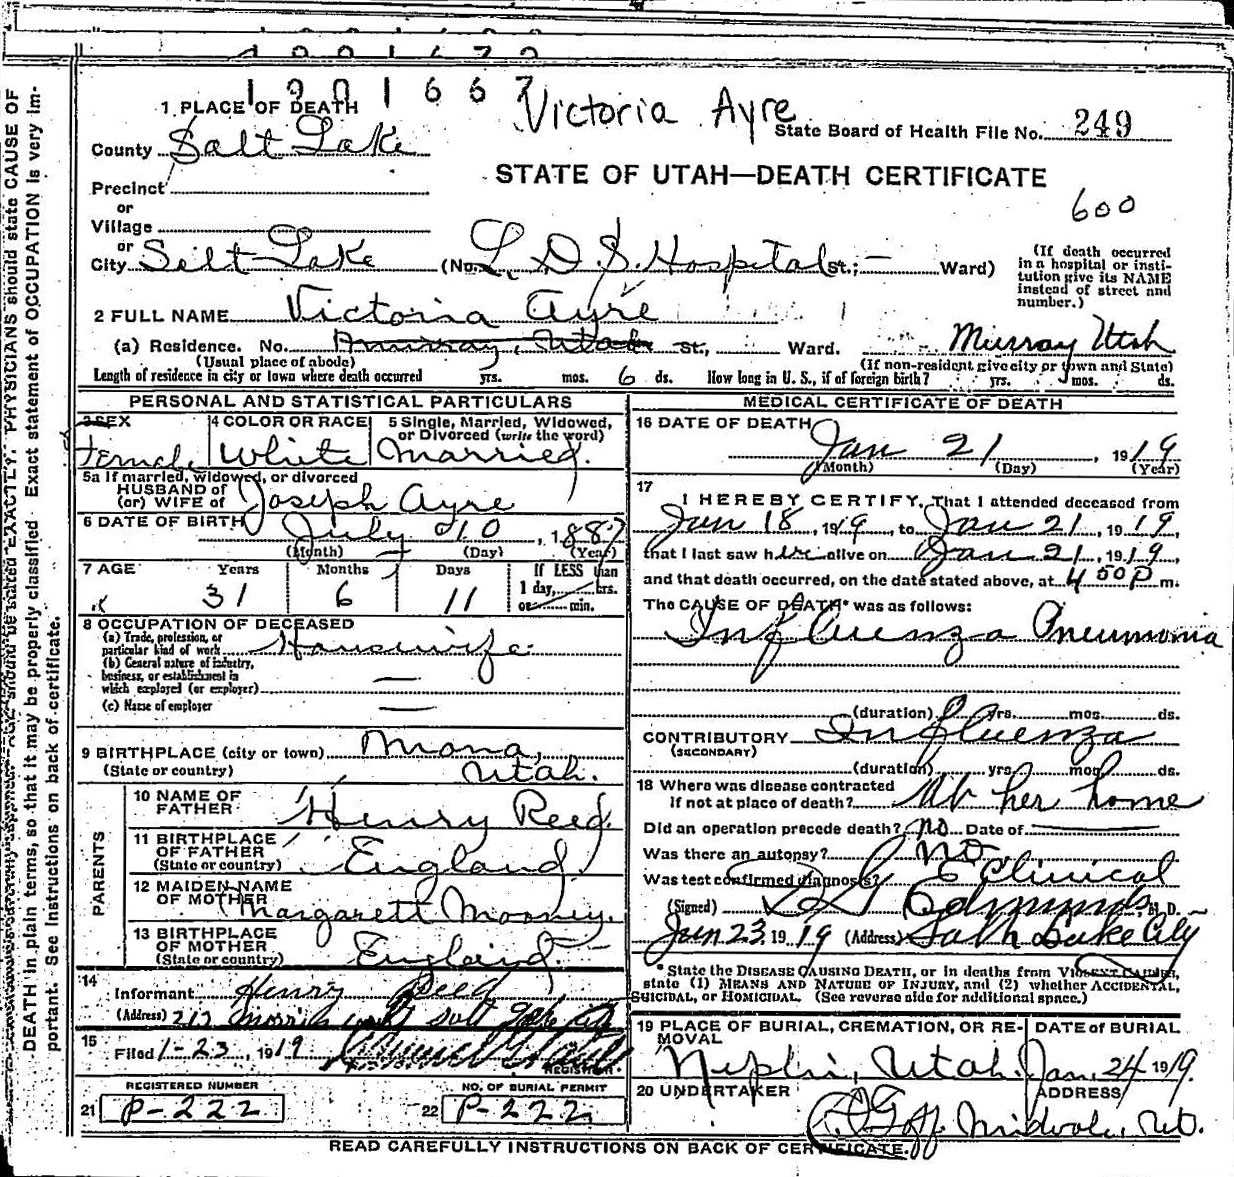 1901667
Victoria Ayre
1 PLACE OF DEATH
State Board of Health File No. 249
County Salt Lake
STATE OF UTAH—DEATH CERTIFICATE
Precinct
600
or
Village
or
City Salt Lake (No. L. D. S. Hospital St.; — Ward)
(If death occurred in a hospital or institution give its NAME instead of street and number.)
2 FULL NAME Victoria Ayre
(a) Residence. No. Murray, Utah St., Ward. Murray Utah
(Usual place of abode) (If non-resident give city or town and State)
Length of residence in city or town where death occurred yrs. mos. 6 ds. How long in U. S., if of foreign birth? yrs. mos. ds.
PERSONAL AND STATISTICAL PARTICULARS
3 SEX Female
4 COLOR OR RACE White
5 Single, Married, Widowed, or Divorced (write the word) Married.
5a If married, widowed, or divorced
HUSBAND of
(or) WIFE of Joseph Ayre
6 DATE OF BIRTH July 10, 1887
(Month) (Day) (Year)
7 AGE Years Months Days If LESS than
31 6 11 1 day, hrs.
or min.
8 OCCUPATION OF DECEASED
(a) Trade, profession, or
particular kind of work Housewife
(b) General nature of industry,
business, or establishment in
which employed (or employer) —
(c) Name of employer —
9 BIRTHPLACE (city or town) Mona,
(State or country) Utah.
PARENTS
10 NAME OF
FATHER Henry Reed.
11 BIRTHPLACE
OF FATHER
(State or country) England
12 MAIDEN NAME
OF MOTHER Margarett Mooney.
13 BIRTHPLACE
OF MOTHER
(State or country) England
14
Informant Henry Reed
(Address) 217
15
Filed 1-23, 1919
REGISTRAR.
REGISTERED NUMBER
21 P-222
NO. OF BURIAL PERMIT
22 P-222
MEDICAL CERTIFICATE OF DEATH
16 DATE OF DEATH
Jan 21, 1919
(Month) (Day) (Year)
17
I HEREBY CERTIFY, That I attended deceased from
Jan 18, 1919, to Jan 21, 1919,
that I last saw her alive on Jan 21, 1919,
and that death occurred, on the date stated above, at 4 50 P m.
The CAUSE OF DEATH* was as follows:
Influenza Pneumonia
(duration) yrs. mos. ds.
CONTRIBUTORY Influenza
(SECONDARY)
(duration) yrs. mos. ds.
18 Where was disease contracted
if not at place of death? At her home
Did an operation precede death? no Date of
Was there an autopsy? no
Was test confirmed diagnosis? Clinical
(Signed) Edmunds, M. D.
Jan 23, 1919 (Address) Salt Lake City
* State the DISEASE CAUSING DEATH, or in deaths from VIOLENT CAUSES,
state (1) MEANS AND NATURE OF INJURY, and (2) whether ACCIDENTAL,
SUICIDAL, or HOMICIDAL. (See reverse side for additional space.)
19 PLACE OF BURIAL, CREMATION, OR REMOVAL
Nephi, Utah.
DATE of BURIAL
Jan. 24 1919.
20 UNDERTAKER
Goff
ADDRESS
Midvale, Ut.
READ CAREFULLY INSTRUCTIONS ON BACK OF CERTIFICATE.
PHYSICIANS should state CAUSE OF
DEATH in plain terms, so that it may be properly classified. Exact statement of OCCUPATION is very important. See instructions on back of certificate.